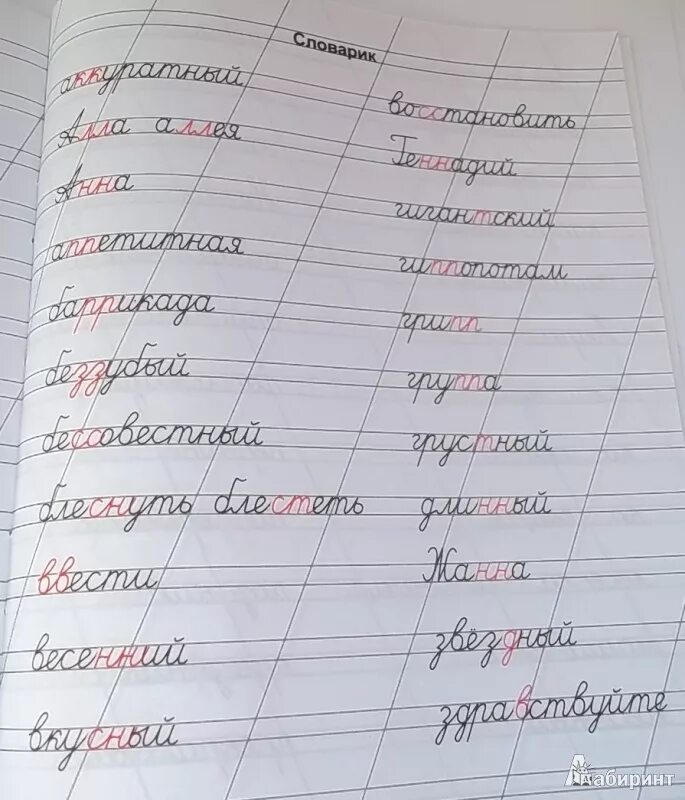 Словарик
аккуратный
Алла аллея
Анна
аппетитная
баррикада
беззубый
бессовестный
блеснуть блестеть
ввести
весенний
вкусный
восстановить
Геннадий
гигантский
гиппопотам
грипп
группа
грустный
длинный
Жанна
звёздный
здравствуйте
Лабиринт